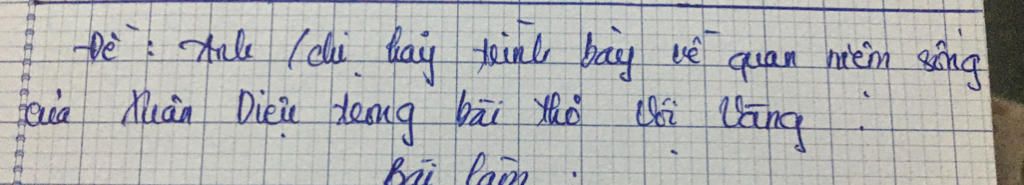 Đề: Anh / chị hãy trình bày về quan niệm sống
của Xuân Diệu trong bài thơ Vội Vàng.
Bài làm.